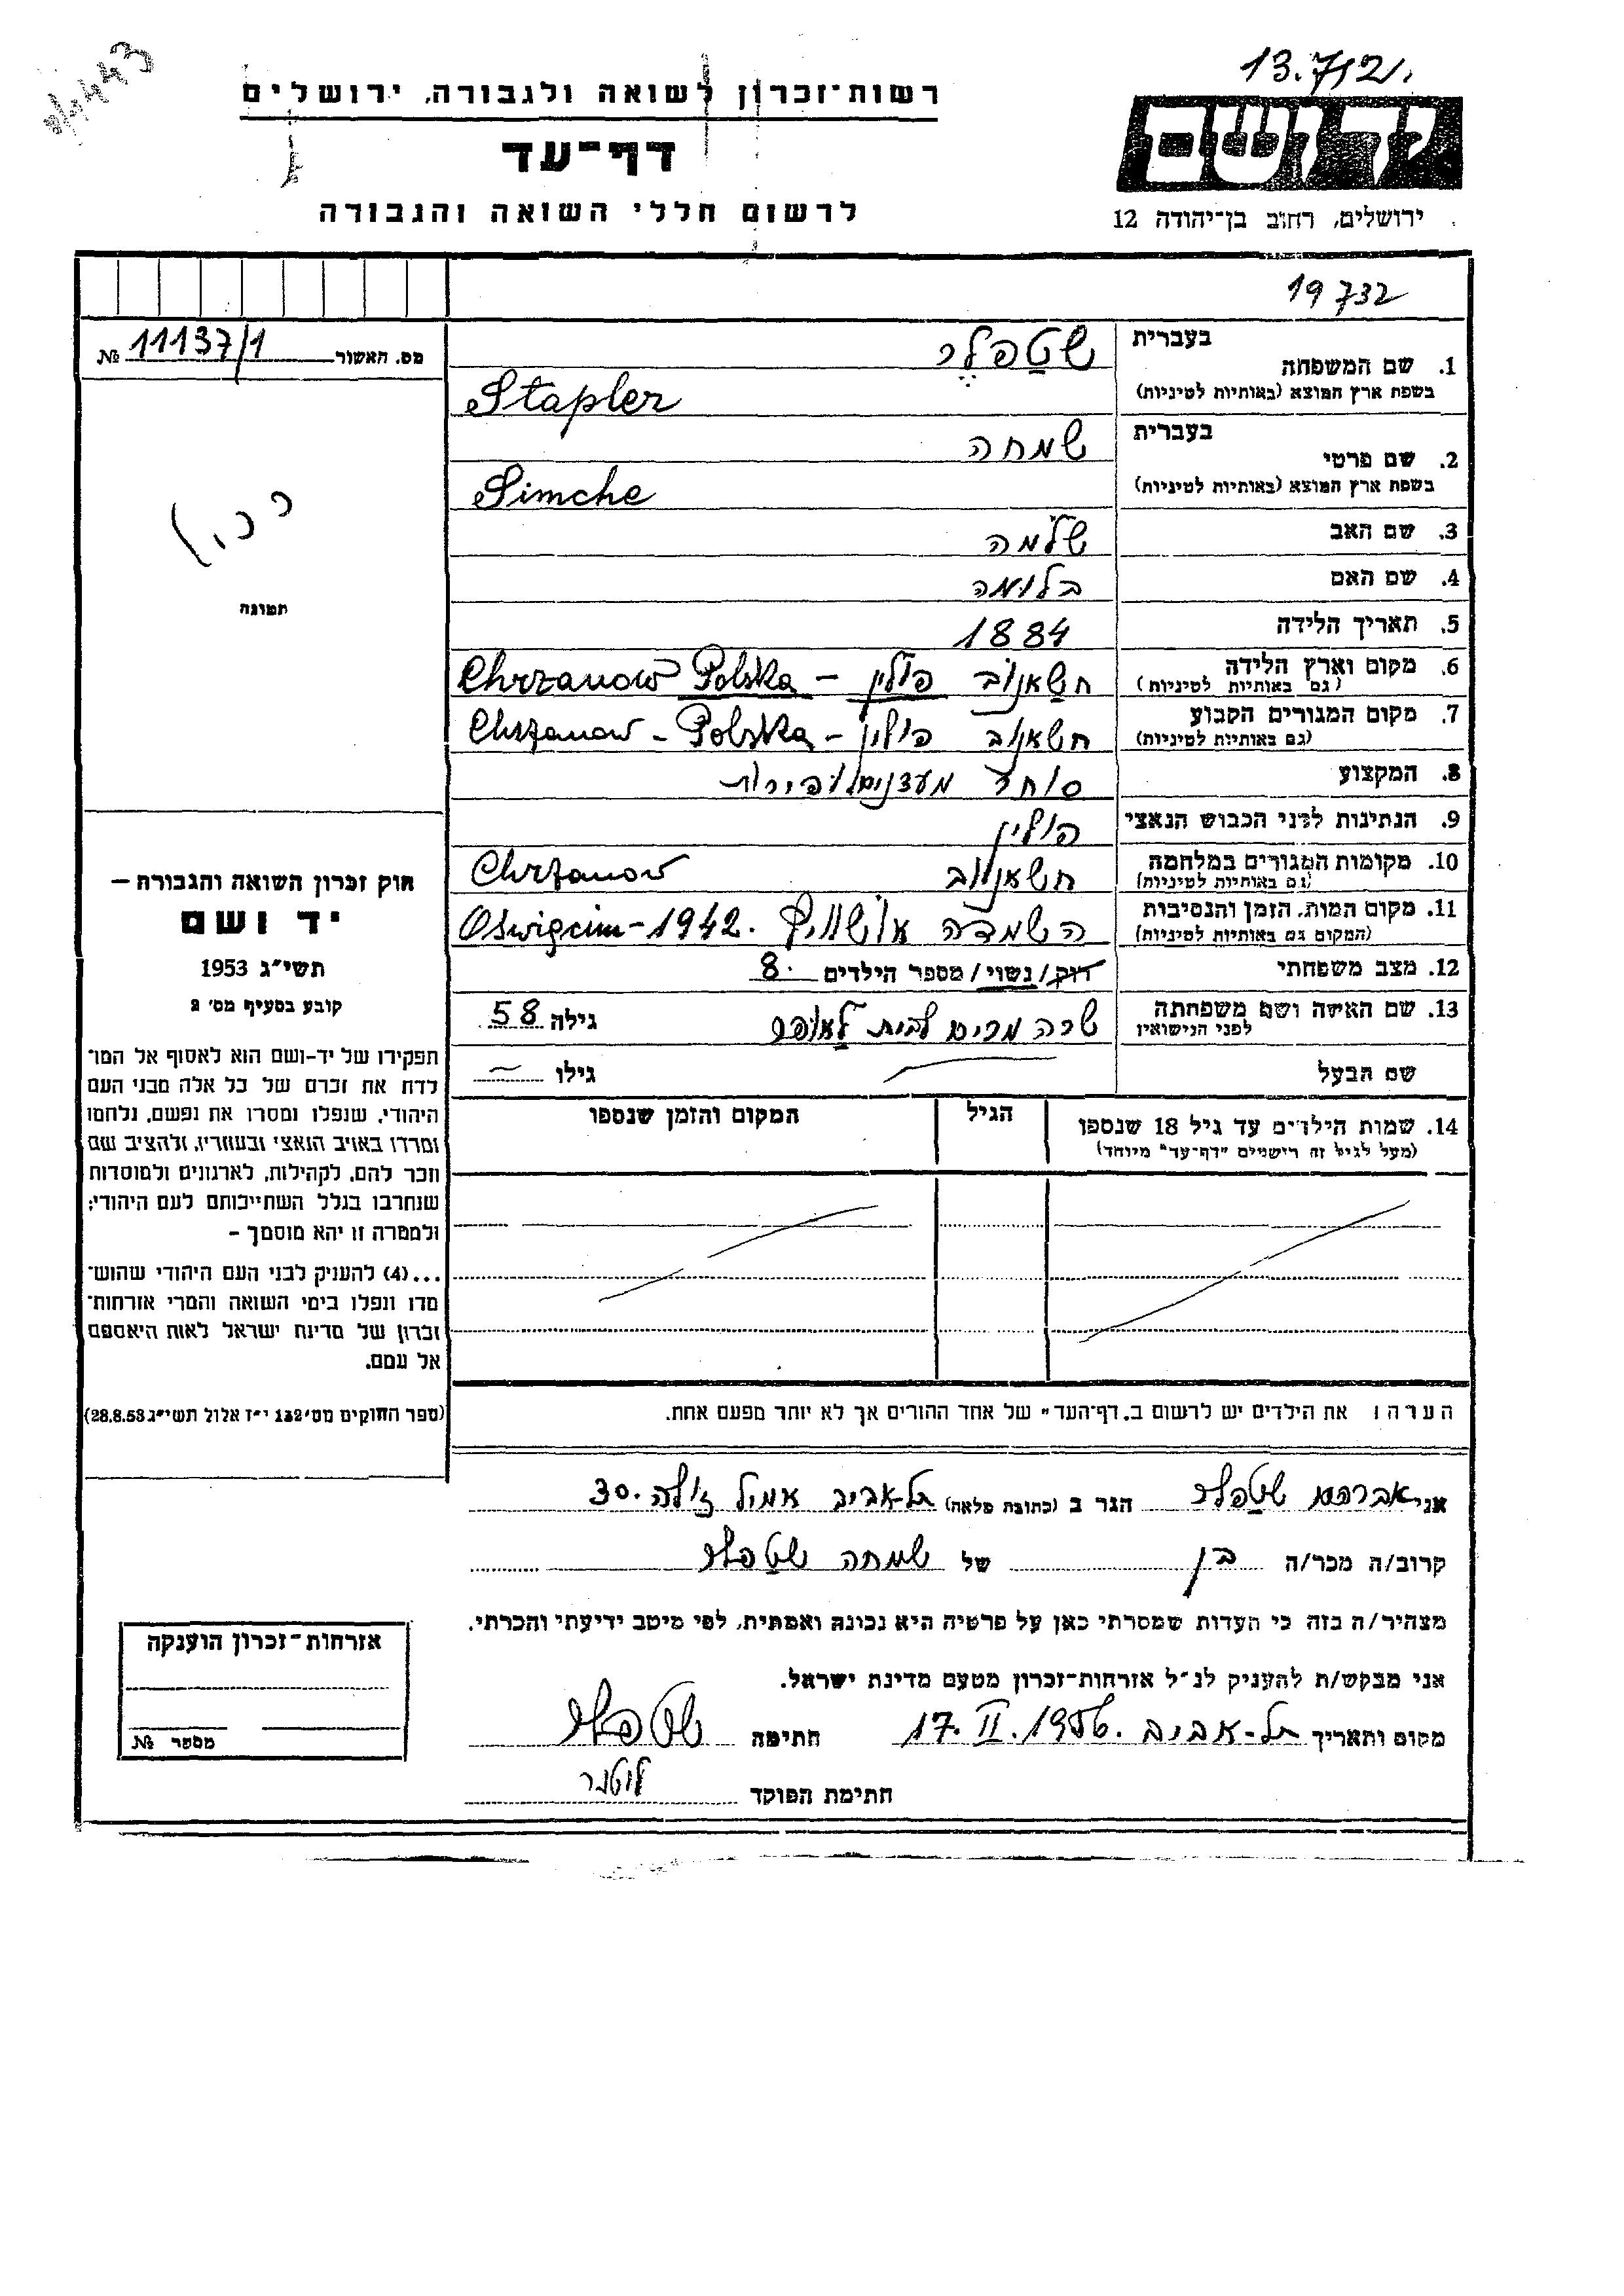 13.7121.
רשות-זכרון לשואה ולגבורה, ירושלים
יד ושם
דף-עד
לרשום חללי השואה והגבורה
ירושלים, רחוב בן-יהודה 12
19732
מס. האשור 11137/1 №
בעברית שטפלר
1. שם המשפחה
בשפת ארץ המוצא (באותיות לטיניות) Stapler
בעברית שמחה
2. שם פרטי
בשפת ארץ המוצא (באותיות לטיניות) Simche
3. שם האב שלמה
4. שם האם בלומה
5. תאריך הלידה 1884
6. מקום וארץ הלידה (גם באותיות לטיניות) חשאנוב פולין – Chrzanow Polska
7. מקום המגורים הקבוע (גם באותיות לטיניות) חשאנוב פולין – Chrzanow – Polska
8. המקצוע סוחר מעדנים ופירות
9. הנתינות לפני הכבוש הנאצי פולין
10. מקומות המגורים במלחמה (גם באותיות לטיניות) חשאנוב Chrzanow
11. מקום המות, הזמן והנסיבות (המקום גם באותיות לטיניות) השמדה אושוויץ Oswięcim – 1942.
12. מצב משפחתי רווק/נשוי/ מספר הילדים 8.
13. שם האשה ושם משפחתה לפני הנישואין שרה מרים לבית גילה 58
שם הבעל גילו
14. שמות הילדים עד גיל 18 שנספו הגיל המקום והזמן שנספו
(מעל לגיל זה רישמים "דף-עד" מיוחד)
הערה: את הילדים יש לרשום ב"דף-העד" של אחד ההורים אך לא יותר מפעם אחת.
תמונה
חוק זכרון השואה והגבורה –
יד ושם
תשי"ג 1953
קובע בסעיף מס' 2
תפקידו של יד-ושם הוא לאסוף אל המו-
לדת את זכרם של כל אלה מבני העם
היהודי, שנפלו ומסרו את נפשם, נלחמו
ומרדו באויב הנאצי ובעוזריו, ולהציב שם
וזכר להם, לקהילות, לארגונים ולמוסדות
שנחרבו בגלל השתייכותם לעם היהודי;
ולמטרה זו יהא מוסמך –
...(4) להעניק לבני העם היהודי שהוש-
מדו ונפלו בימי השואה והמרי אזרחות-
זכרון של מדינת ישראל לאות היאספם
אל עמם.
(ספר החוקים מס' 132 י"ז אלול תשי"ג 28.8.53)
אני אברהם שטפלר הגר ב (כתובת מלאה) תל-אביב אמיל זולה 30.
קרוב/ה מכר/ה בן של שמחה שטפלר
מצהיר/ה בזה כי העדות שמסרתי כאן על פרטיה היא נכונה ואמתית, לפי מיטב ידיעתי והכרתי.
אני מבקש/ת להעניק לנ"ל אזרחות-זכרון מטעם מדינת ישראל.
מקום ותאריך תל-אביב 17.II.1956. חתימה שטפלר
חתימת הפוקד
אזרחות-זכרון הוענקה
מספר №